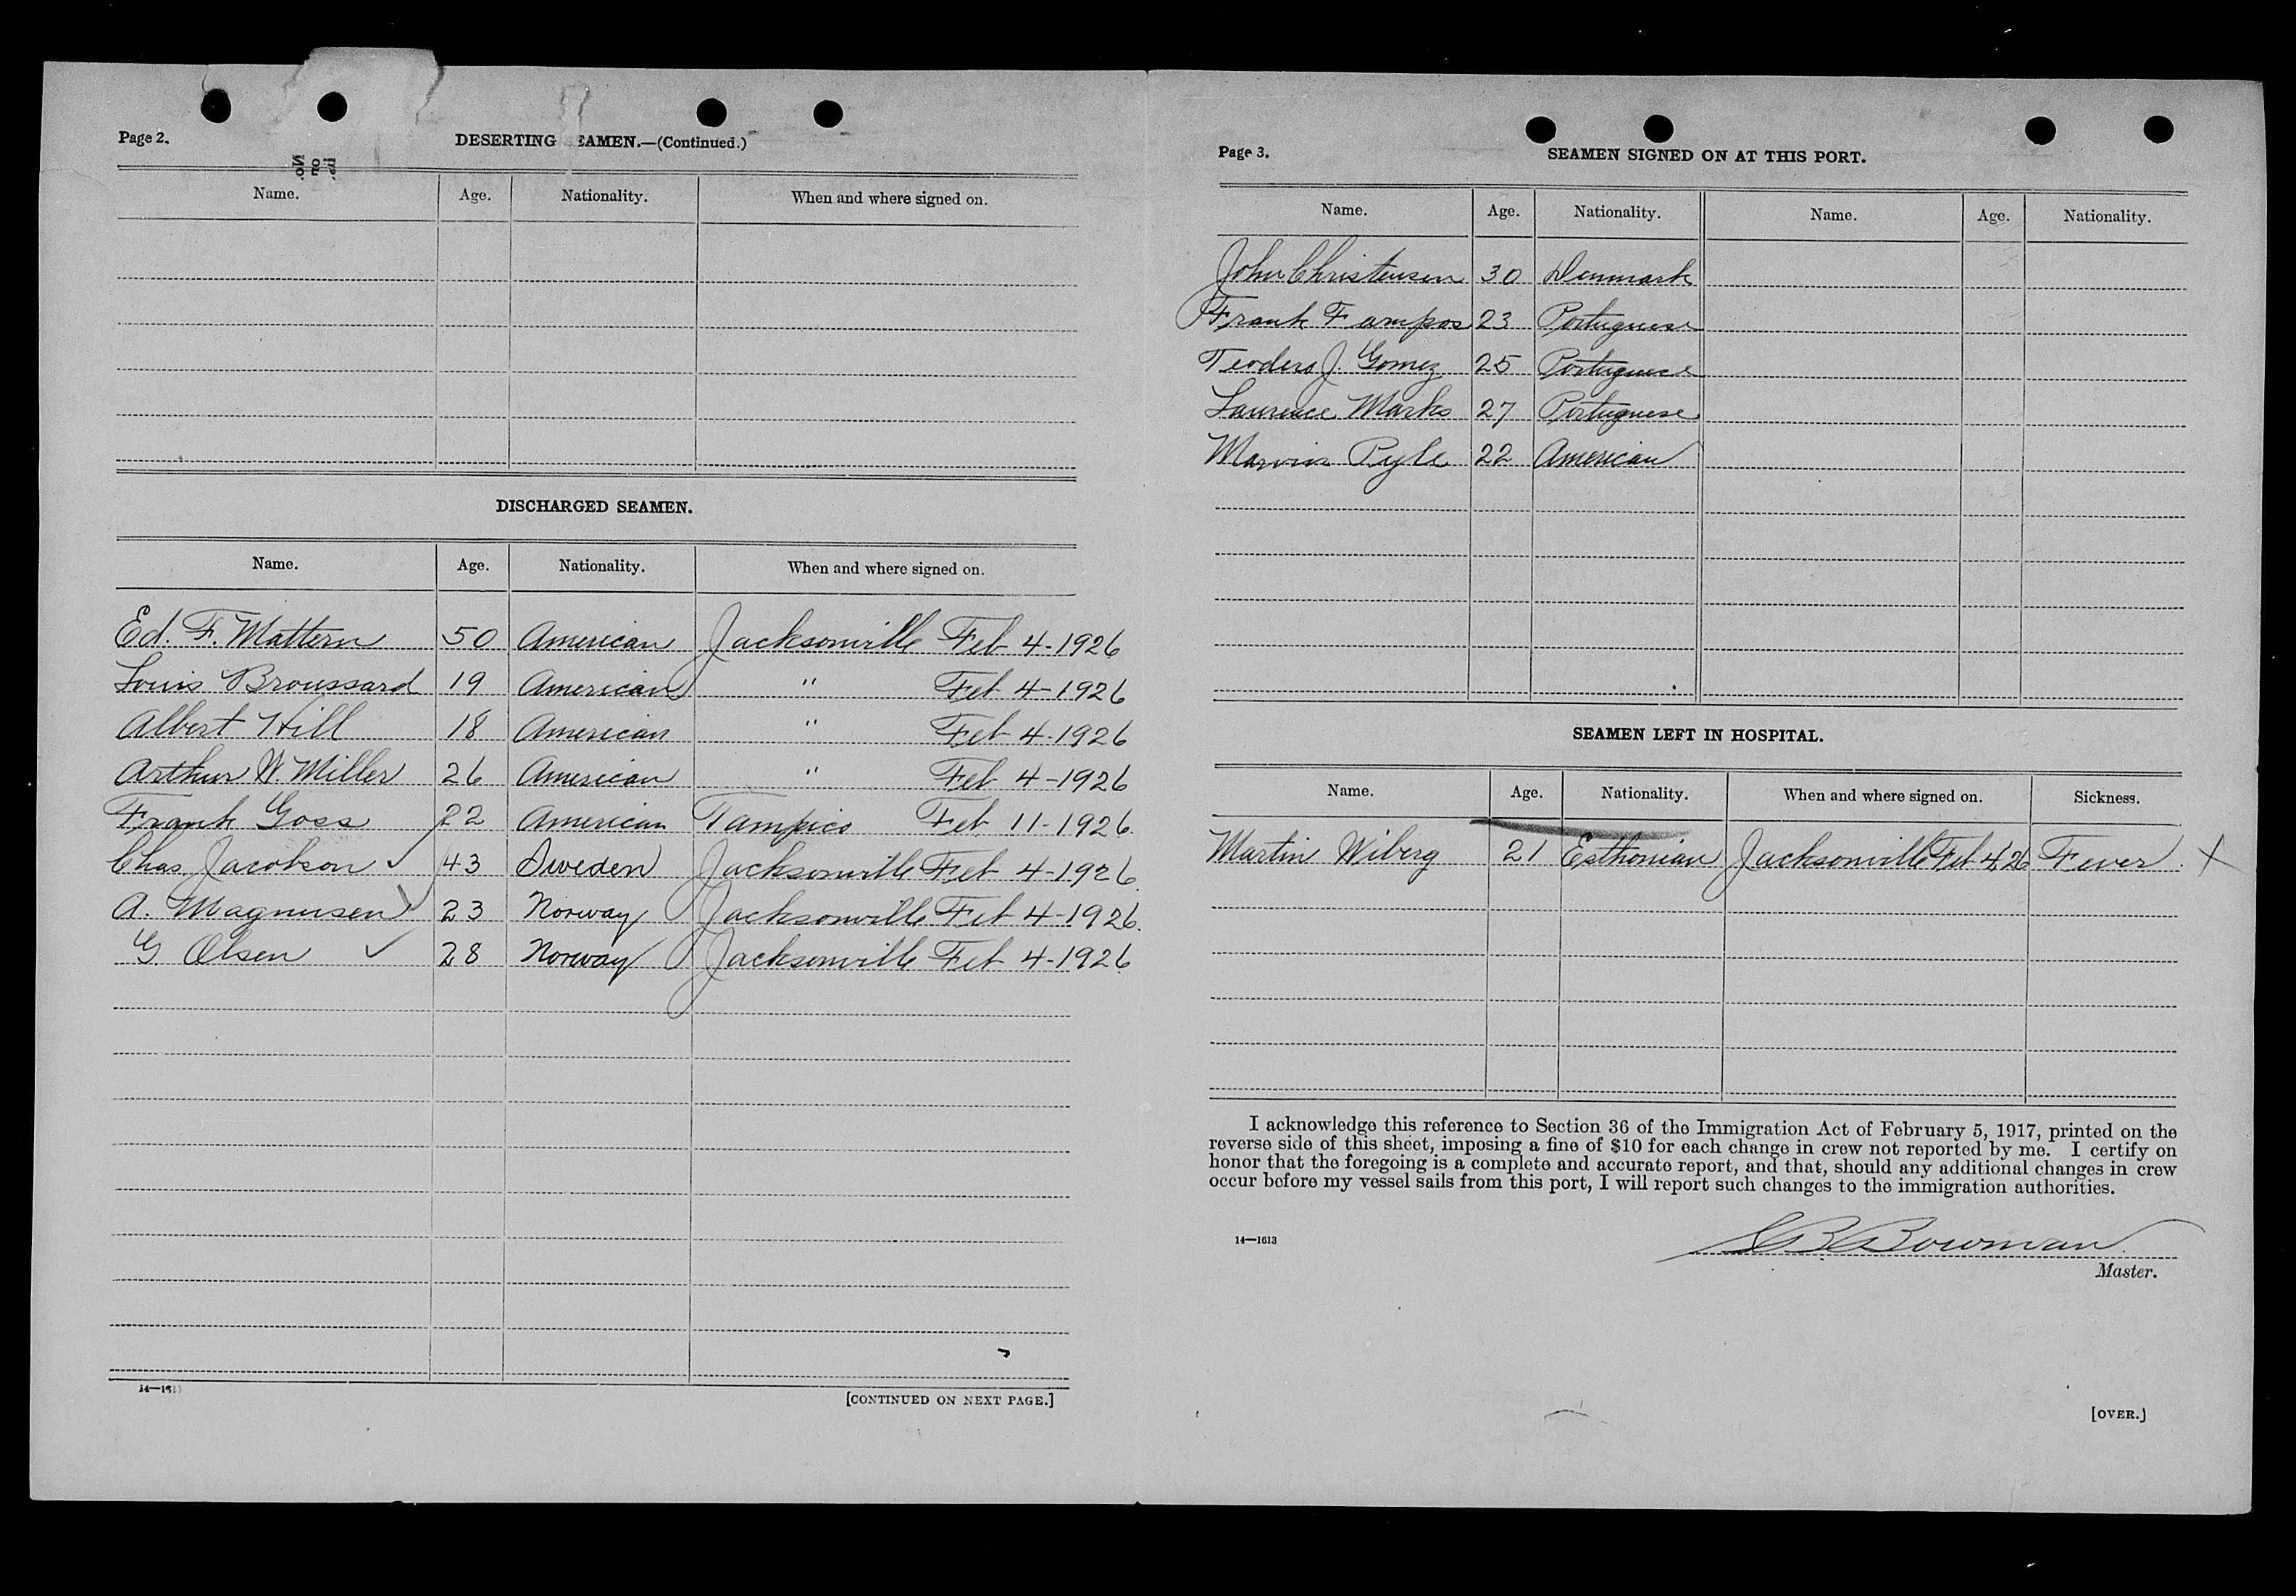 Page 2.
DESERTING EAMEN.—(Continued.)
Name. Age. Nationality. When and where signed on.
DISCHARGED SEAMEN.
Name. Age. Nationality. When and where signed on.
Ed. F. Mattern 50 American Jacksonville Feb 4-1926
Louis Broussard 19 American " Feb 4-1926
Albert Hill 18 American " Feb 4-1926
Arthur W. Miller 26 American " Feb 4-1926
Frank Goss 22 American Tampico Feb 11-1926.
Chas. Jacobson ✓ 43 Sweden Jacksonville Feb 4-1926.
A. Magnusen ✓ 23 Norway Jacksonville Feb 4-1926.
G. Olsen ✓ 28 Norway Jacksonville Feb 4-1926
14—1613
[CONTINUED ON NEXT PAGE.]
Page 3.
SEAMEN SIGNED ON AT THIS PORT.
Name. Age. Nationality. Name. Age. Nationality.
John Christensen 30 Denmark
Frank Fampos 23 Portuguese
Teodero J. Gomez 25 Portuguese
Laurence Marks 27 Portuguese
Marvin Pyle 22 American
SEAMEN LEFT IN HOSPITAL.
Name. Age. Nationality. When and where signed on. Sickness.
Martin Wiberg 21 Esthonian Jacksonville Feb 4, 26 Fever. X
I acknowledge this reference to Section 36 of the Immigration Act of February 5, 1917, printed on the
reverse side of this sheet, imposing a fine of $10 for each change in crew not reported by me. I certify on
honor that the foregoing is a complete and accurate report, and that, should any additional changes in crew
occur before my vessel sails from this port, I will report such changes to the immigration authorities.
14—1613
Bowman
Master.
[OVER.]